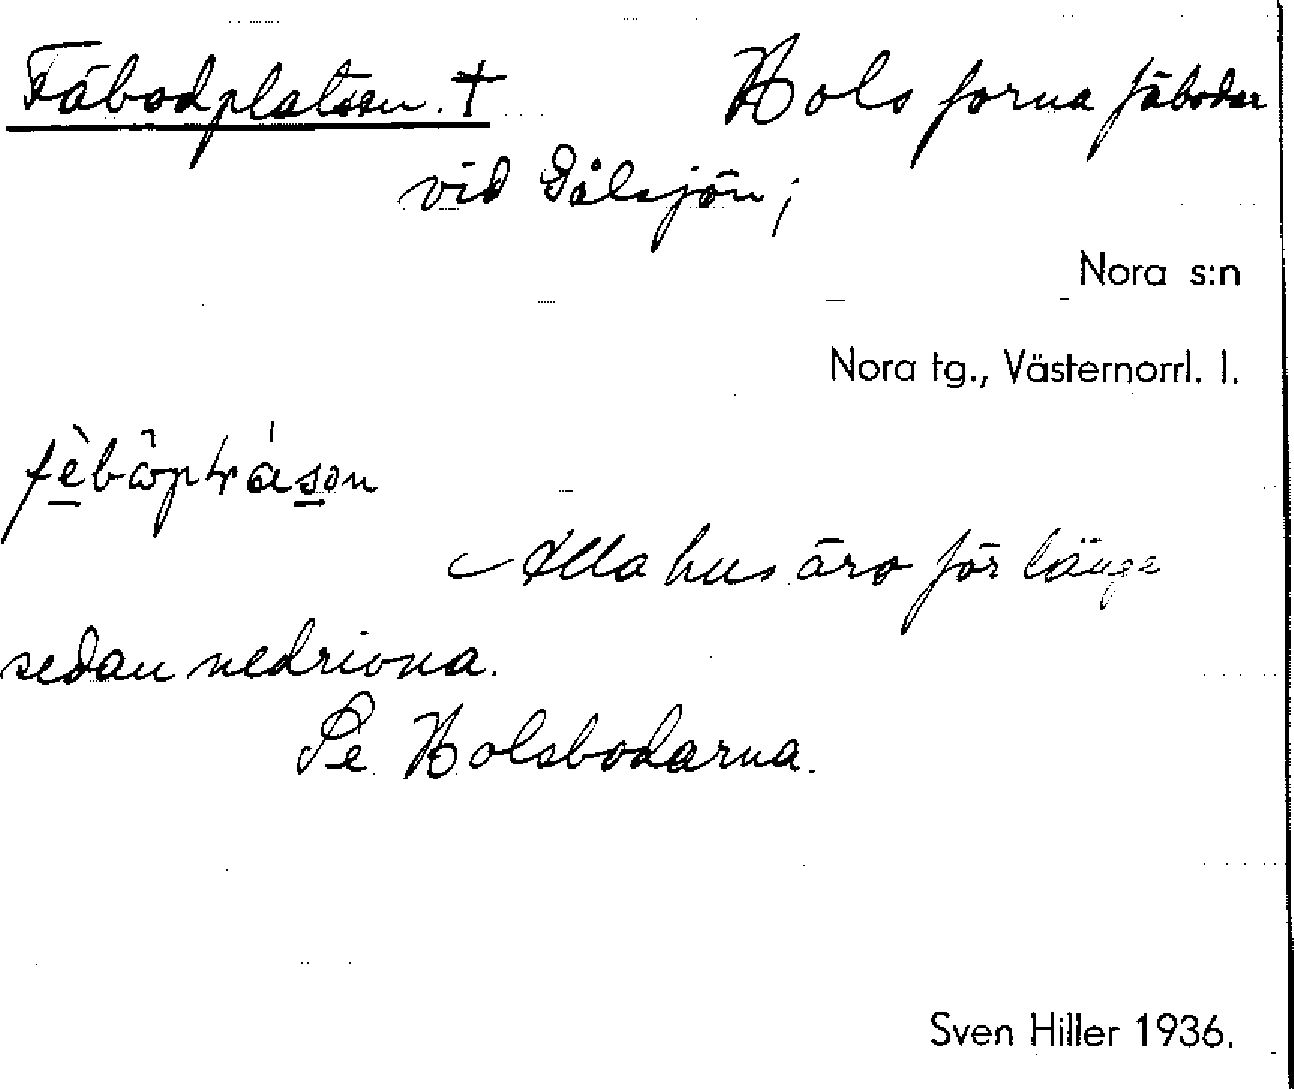 Fäbodplatsen. † Hols forna fäbodar
vid Gålsjön;
Nora s:n
Nora tg., Västernorrl. l.
Alla hus äro för länge
sedan nedrivna.
Se Holsbodarna.
Sven Hiller 1936.